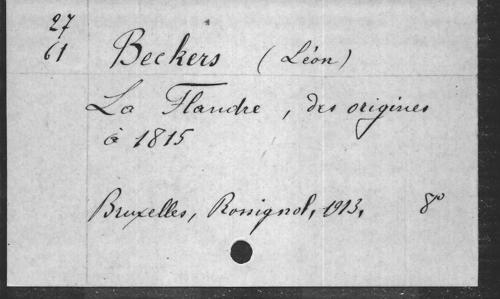 27
61 Beckers (Léon)
La Flandre, des origines
à 1815
Bruxelles, Rossignol, 1913, 8°